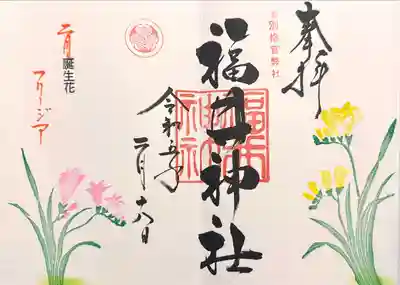 奉拝
旧別格官幣社
福井神社
令和五年
二月十六日
二月誕生花
フリージア